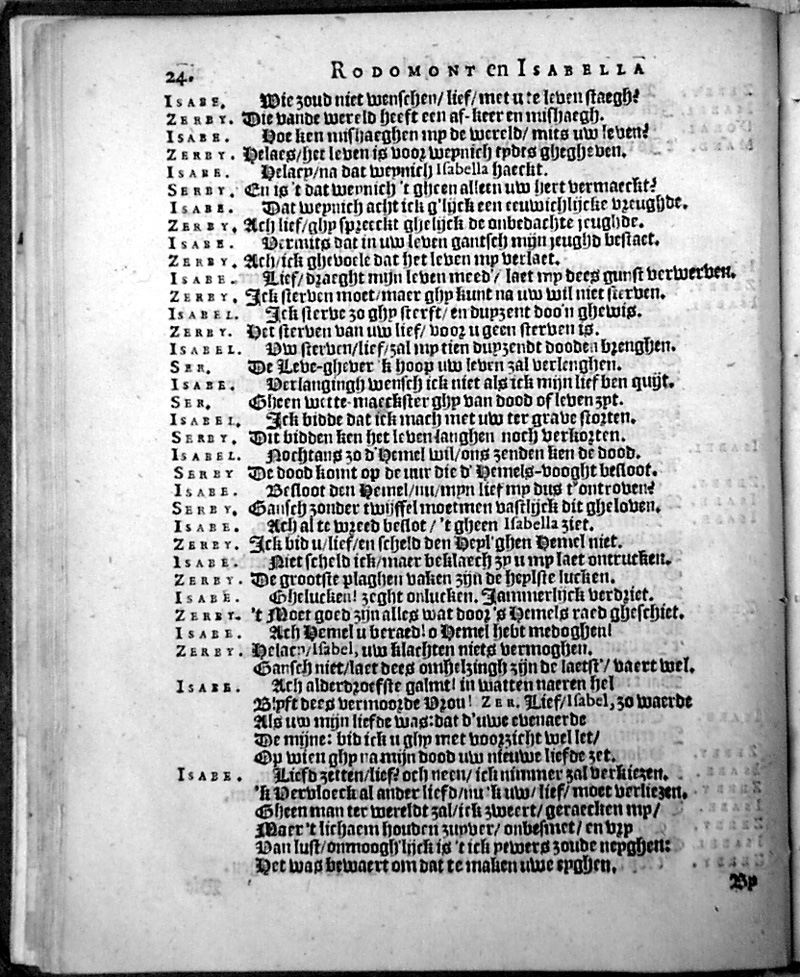 24. RODOMONT en ISABELLA
ISABE. Wie zoud niet wenschen/ lief/ met u te leven staegh?
ZERBY. Die vande wereld heeft een af-keer en mishaegh.
ISABE. Hoe ken mishaeghen my de wereld/ mits uw leven?
ZERBY. Helaes/het leven is voor weynich tydts ghegheven.
ISABE. Helacy/na dat weynich Isabella haeckt.
SERBY. En is 't dat weynich 't gheen alleen uw hert vermaeckt?
ISABE. Dat weynich acht ick g'lijck een eeuwichlijcke vreughde.
ZERBY. Ach lief/ghy spreeckt ghelijck de onbedachte jeughde.
ISABE. Vermits dat in uw leven gantsch mijn jeughd bestaet.
ZERBY. Ach/ick ghevoele dat het leven my verlaet.
ISABE. Lief/draeght mijn leven meed'/ laet my dees gunst verwerven.
ZERBY. Ick sterven moet/maer ghy kunt na uw wil niet sterven.
ISABEL. Ick sterve zo ghy sterft/ en duyzent doo'n ghewis.
ZERBY. Het sterven van uw lief/ voor u geen sterven is.
ISABEL. Uw sterven/lief/zal my tien duyzendt dooden brenghen.
SER. De Leve-ghever 'k hoop uw leven zal verlenghen.
ISABE. Verlangingh wensch ick niet als ick mijn lief ben quijt.
SER. Gheen wette-maeckster ghy van dood of leven zyt.
ISABEL. Ick bidde dat ick mach met uw ter grave storten.
SERBY. Dit bidden ken het leven langhen noch verkorten.
ISABEL. Nochtans zo d'Hemel wil/ons zenden ken de dood.
SERBY De dood komt op de uur die d'Hemels-vooght besloot.
ISABE. Besloot den Hemel/nu/myn lief my dus t'ontroven?
SERBY. Gansch zonder twijffel moetmen vastlijck dit gheloven.
ISABE. Ach al te wreed beslot/'t gheen Isabella ziet.
ZERBY. Ick bid u/lief/en scheld den Heyl'ghen Hemel niet.
ISABE. Niet scheld ick/maer beklaech zy u my laet ontrucken.
ZERBY. De grootste plaghen vaken zijn de heylste lucken.
ISABE. Ghelucken! zeght onlucken. Jammerlijck verdriet.
ZERBY. 't Moet goed zijn alles wat door 's Hemels raed gheschiet.
ISABE. Ach Hemel u beraed! o Hemel hebt medoghen!
ZERBY. Helacy/Isabel, uw klachten niets vermoghen.
Gansch niet/laet dees omhelzingh zijn de laetst'/vaert wel.
ISABE. Ach alderdroefste galmt! in watten naeren hel
Blyft dees vermoorde Vrou! ZER. Lief/Isabel, zo waerde
Als uw mijn liefde was: dat d'uwe evenaerde
De mijne: bid ick u ghy met voorzicht wel let/
Op wien ghy na mijn dood uw nieuwe liefde zet.
ISABE. Liefd zetten/lief? och neen/ ick nimmer zal verkiezen.
'k Vervloeck al ander liefd/nu 'k uw/ lief/ moet verliezen.
Gheen man ter wereldt zal/ick zweert/ geraecken my/
Maer 't lichaem houden zuyver/ onbesmet/ en vry
Van lust/onmoogh'lijck is 't ick yewers zoude neyghen:
Het was bewaert om dat te maken uwe eyghen.
By